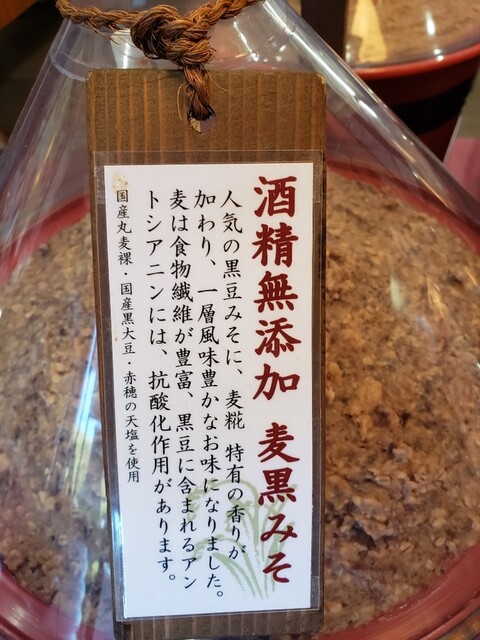 酒精無添加 麦黒みそ
人気の黒豆みそに、麦糀 特有の香りが
加わり、一層風味豊かなお味になりました。
麦は食物繊維が豊富、黒豆に含まれるアン
トシアニンには、抗酸化作用があります。
国産丸麦裸・国産黒大豆・赤穂の天塩を使用